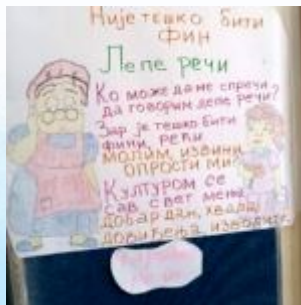 Није тешко бити
фин
Лепе речи
Ко може да ме спречи
да говорим лепе речи?
Зар је тешко бити
фини, рећи
молим, извини,
опрости ми.
Културом се
сав свет мења,
добар дан, хвала,
довиђења